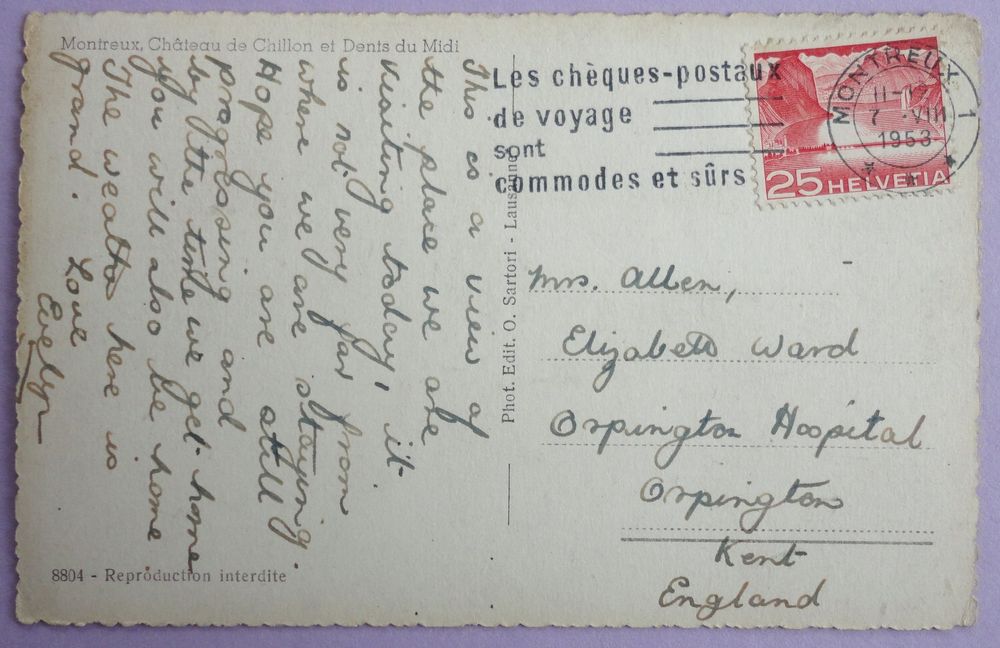 Montreux, Château de Chillon et Dents du Midi
This is a view of
the place we are
visiting today, it
is not very far from
where we are staying.
Hope you are still
progressing and
by the time we get home
you will also be home
The weather here is
grand.
Love
Evelyn
8804 - Reproduction interdite
Phot. Edit. O. Sartori - Lausanne
Les chèques-postaux
de voyage
sont
commodes et sûrs
MONTREUX 1
7 -VIII
1953
25 HELVETIA
Mrs. Allen,
Elizabeth Ward
Orpington Hospital
Orpington
Kent
England